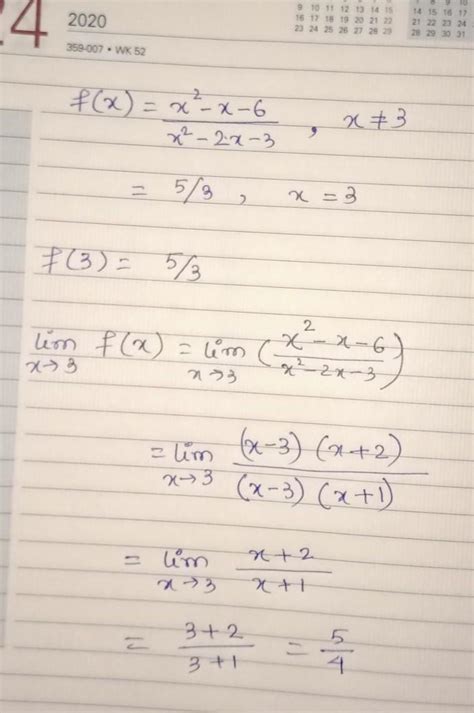 24
2020
359-007 • WK 52
9 10 11 12 13 14 15
16 17 18 19 20 21 22
23 24 25 26 27 28 29
14 15 16 17 18 19 20
21 22 23 24 25 26 27
28 29 30 31
f(x) = x² - x - 6 / x² - 2x - 3 , x ≠ 3
= 5/3 , x = 3
f(3) = 5/3
lim x→3 f(x) = lim x→3 (x² - x - 6 / x² - 2x - 3)
= lim x→3 (x-3) (x+2) / (x-3) (x+1)
= lim x→3 x+2 / x+1
= 3+2 / 3+1 = 5/4